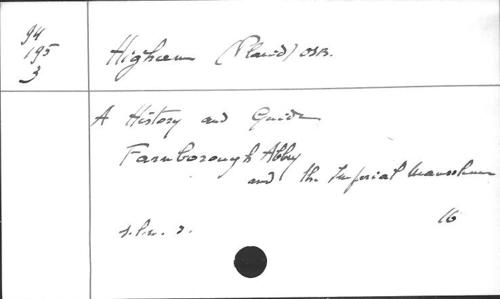 94
195
3
Higham (Placid) OSB.
A History and Guide
Farnborough Abbey
and the Imperial Mausoleum
16